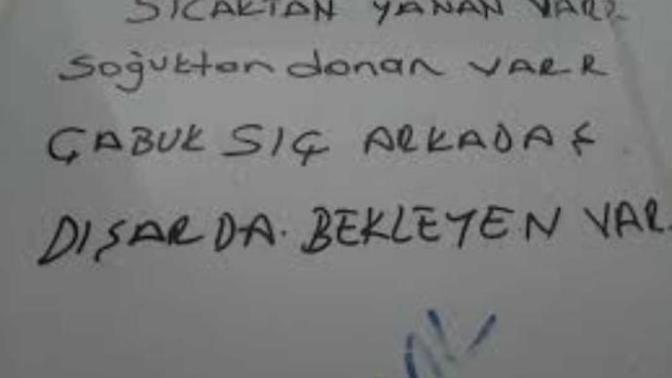 SICAKTAN YANAN VAR
soğuktan donan VARR
ÇABUK SIÇ ARKADAŞ
DIŞARDA. BEKLEYEN VAR.